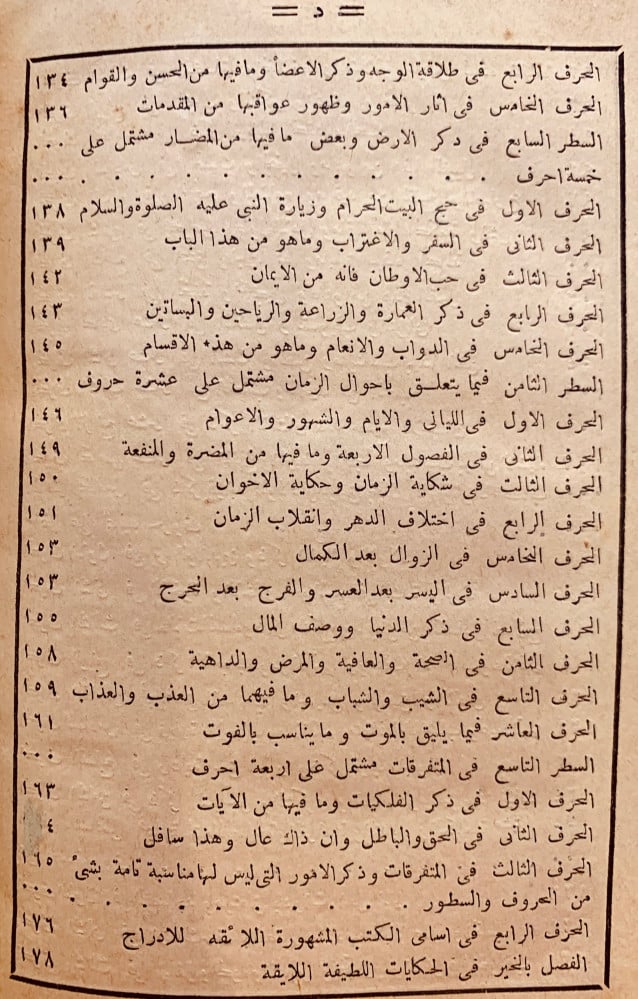 = د =
الحرف الرابع فى طلاقة الوجه وذكر الاعضا وما فيها من الحسن والقوام ١٣٤
الحرف الخامس فى اثار الامور وظهور عواقبها من المقدمات ١٣٦
السطر السابع فى دكر الارض وبعض ما فيها من المضار مشتمل على ٠٠٠
خمسة احرف . . . . . . . . . . . ٠٠٠
الحرف الاول فى حج البيت الحرام وزيارة النبى عليه الصلوة والسلام ١٣٨
الحرف الثانى فى السفر والاغتراب وماهو من هذا الباب ١٣٩
الحرف الثالث فى حب الاوطان فانه من الايمان ١٤٢
الحرف الرابع فى ذكر العمارة والزراعة والرياحين والبساتين ١٤٣
الحرف الخامس فى الدواب والانعام وماهو من هذه الاقسام ١٤٥
السطر الثامن فيما يتعلق باحوال الزمان مشتمل على عشرة حروف ٠٠٠
الحرف الاول فى الليالى والايام والشهور والاعوام ١٤٦
الحرف الثانى فى الفصول الاربعة وما فيها من المضرة والمنفعة ١٤٩
الحرف الثالث فى شكاية الزمان وحكاية الاخوان ١٥٠
الحرف الرابع فى اختلاف الدهر وانقلاب الزمان ١٥١
الحرف الخامس فى الزوال بعد الكمال ١٥٣
الحرف السادس فى اليسر بعد العسر والفرج بعد الحرج ١٥٣
الحرف السابع فى ذكر الدنيا ووصف المال ١٥٥
الحرف الثامن فى الصحة والعافية والمرض والداهية ١٥٨
الحرف التاسع فى الشيب والشباب وما فيهما من العذب والعذاب ١٥٩
الحرف العاشر فيما يليق بالموت وما يناسب بالفوت ١٦١
السطر التاسع فى المتفرقات مشتمل على اربعة احرف ٠٠٠
الحرف الاول فى ذكر الفلكيات وما فيها من الآيات ١٦٣
الحرف الثانى فى الحق والباطل وان ذاك عال وهذا سافل ٤
الحرف الثالث فى المتفرقات وذكر الامور التى ليس لها مناسبة تامة بشئ ١٦٥
من الحروف والسطور . . . . . . . . . . ٠٠٠
الحرف الرابع فى اسامى الكتب المشهورة اللائقه للادراج ١٧٦
الفصل بالخير فى الحكايات اللطيفة اللايقة ١٧٨